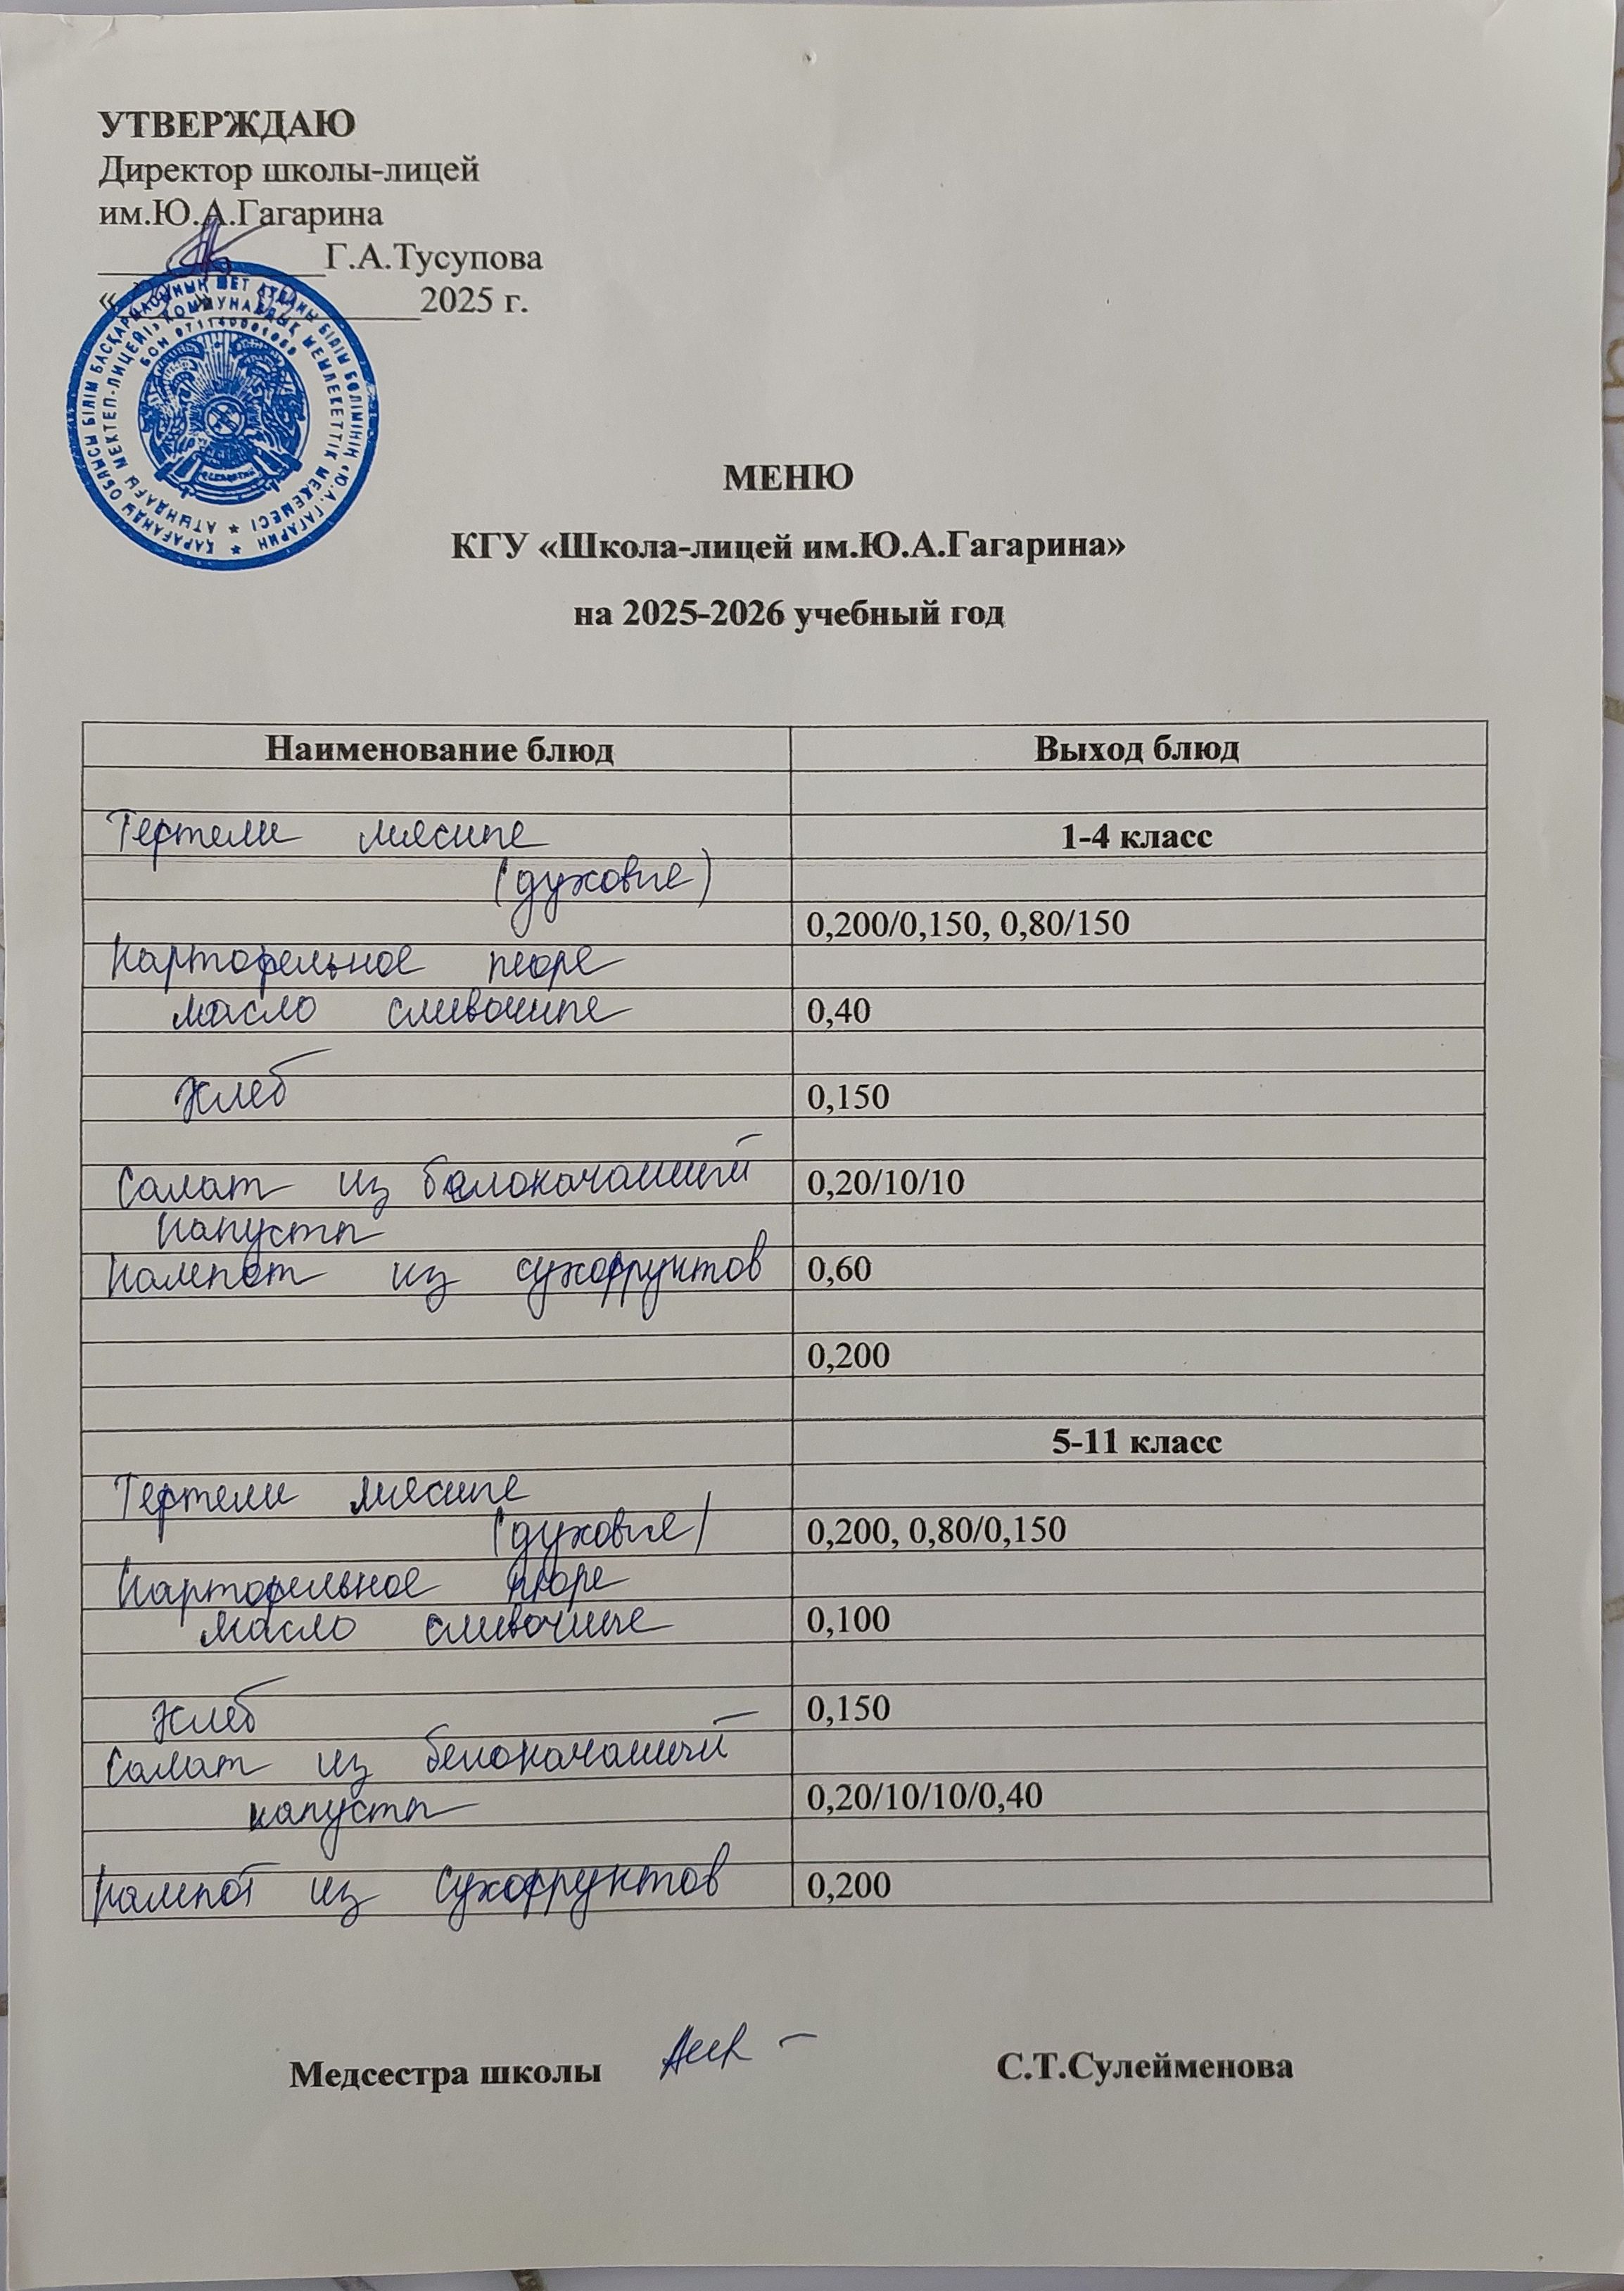 УТВЕРЖДАЮ
Директор школы-лицей
им.Ю.А.Гагарина
____________Г.А.Тусупова
«    »            2025 г.
ҚАРАҒАНДЫ ОБЛЫСЫ БІЛІМ БАСҚАРМАСЫНЫҢ ШЕТ АУДАНЫ БІЛІМ БӨЛІМІНІҢ «Ю.А. ГАГАРИН
АТЫНДАҒЫ МЕКТЕП-ЛИЦЕЙІ» КОММУНАЛДЫҚ МЕМЛЕКЕТТІК МЕКЕМЕСІ
МЕНЮ
КГУ «Школа-лицей им.Ю.А.Гагарина»
на 2025-2026 учебный год
Наименование блюд Выход блюд
Тефтели мясные 1-4 класс
(духовые)
0,200/0,150, 0,80/150
Картофельное пюре
масло сливочные 0,40
Хлеб 0,150
Салат из белокочанный 0,20/10/10
капусты
Кампот из сухофруктов 0,60
0,200
5-11 класс
Тефтели мясные
(духовые) 0,200, 0,80/0,150
Картофельное пюре
масло сливочные 0,100
Хлеб 0,150
Салат из белокачаный
капусты 0,20/10/10/0,40
Кампот из сухофруктов 0,200
Медсестра школы С.Т.Сулейменова